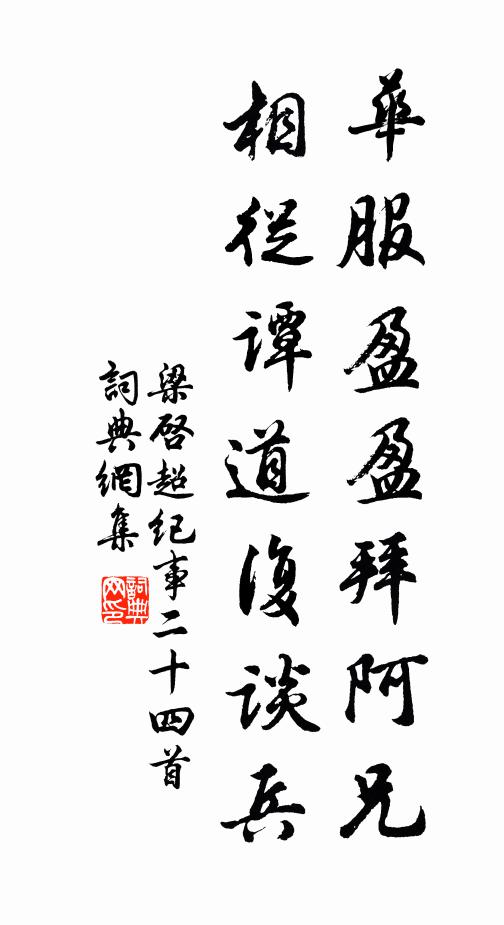 華服盈盈拜阿兄
相從谭道復谈兵
梁啓超纪事二十四首
詞典網集
詞典网印